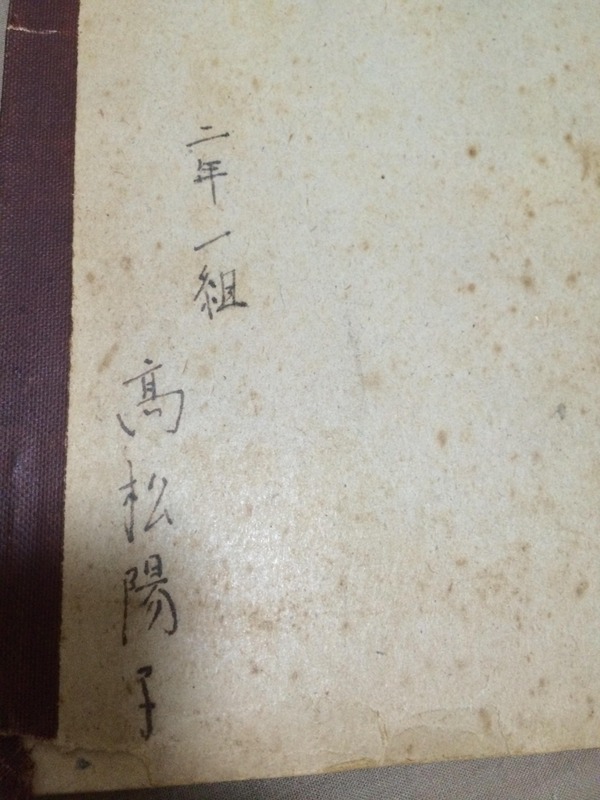 二年一組
高松陽子